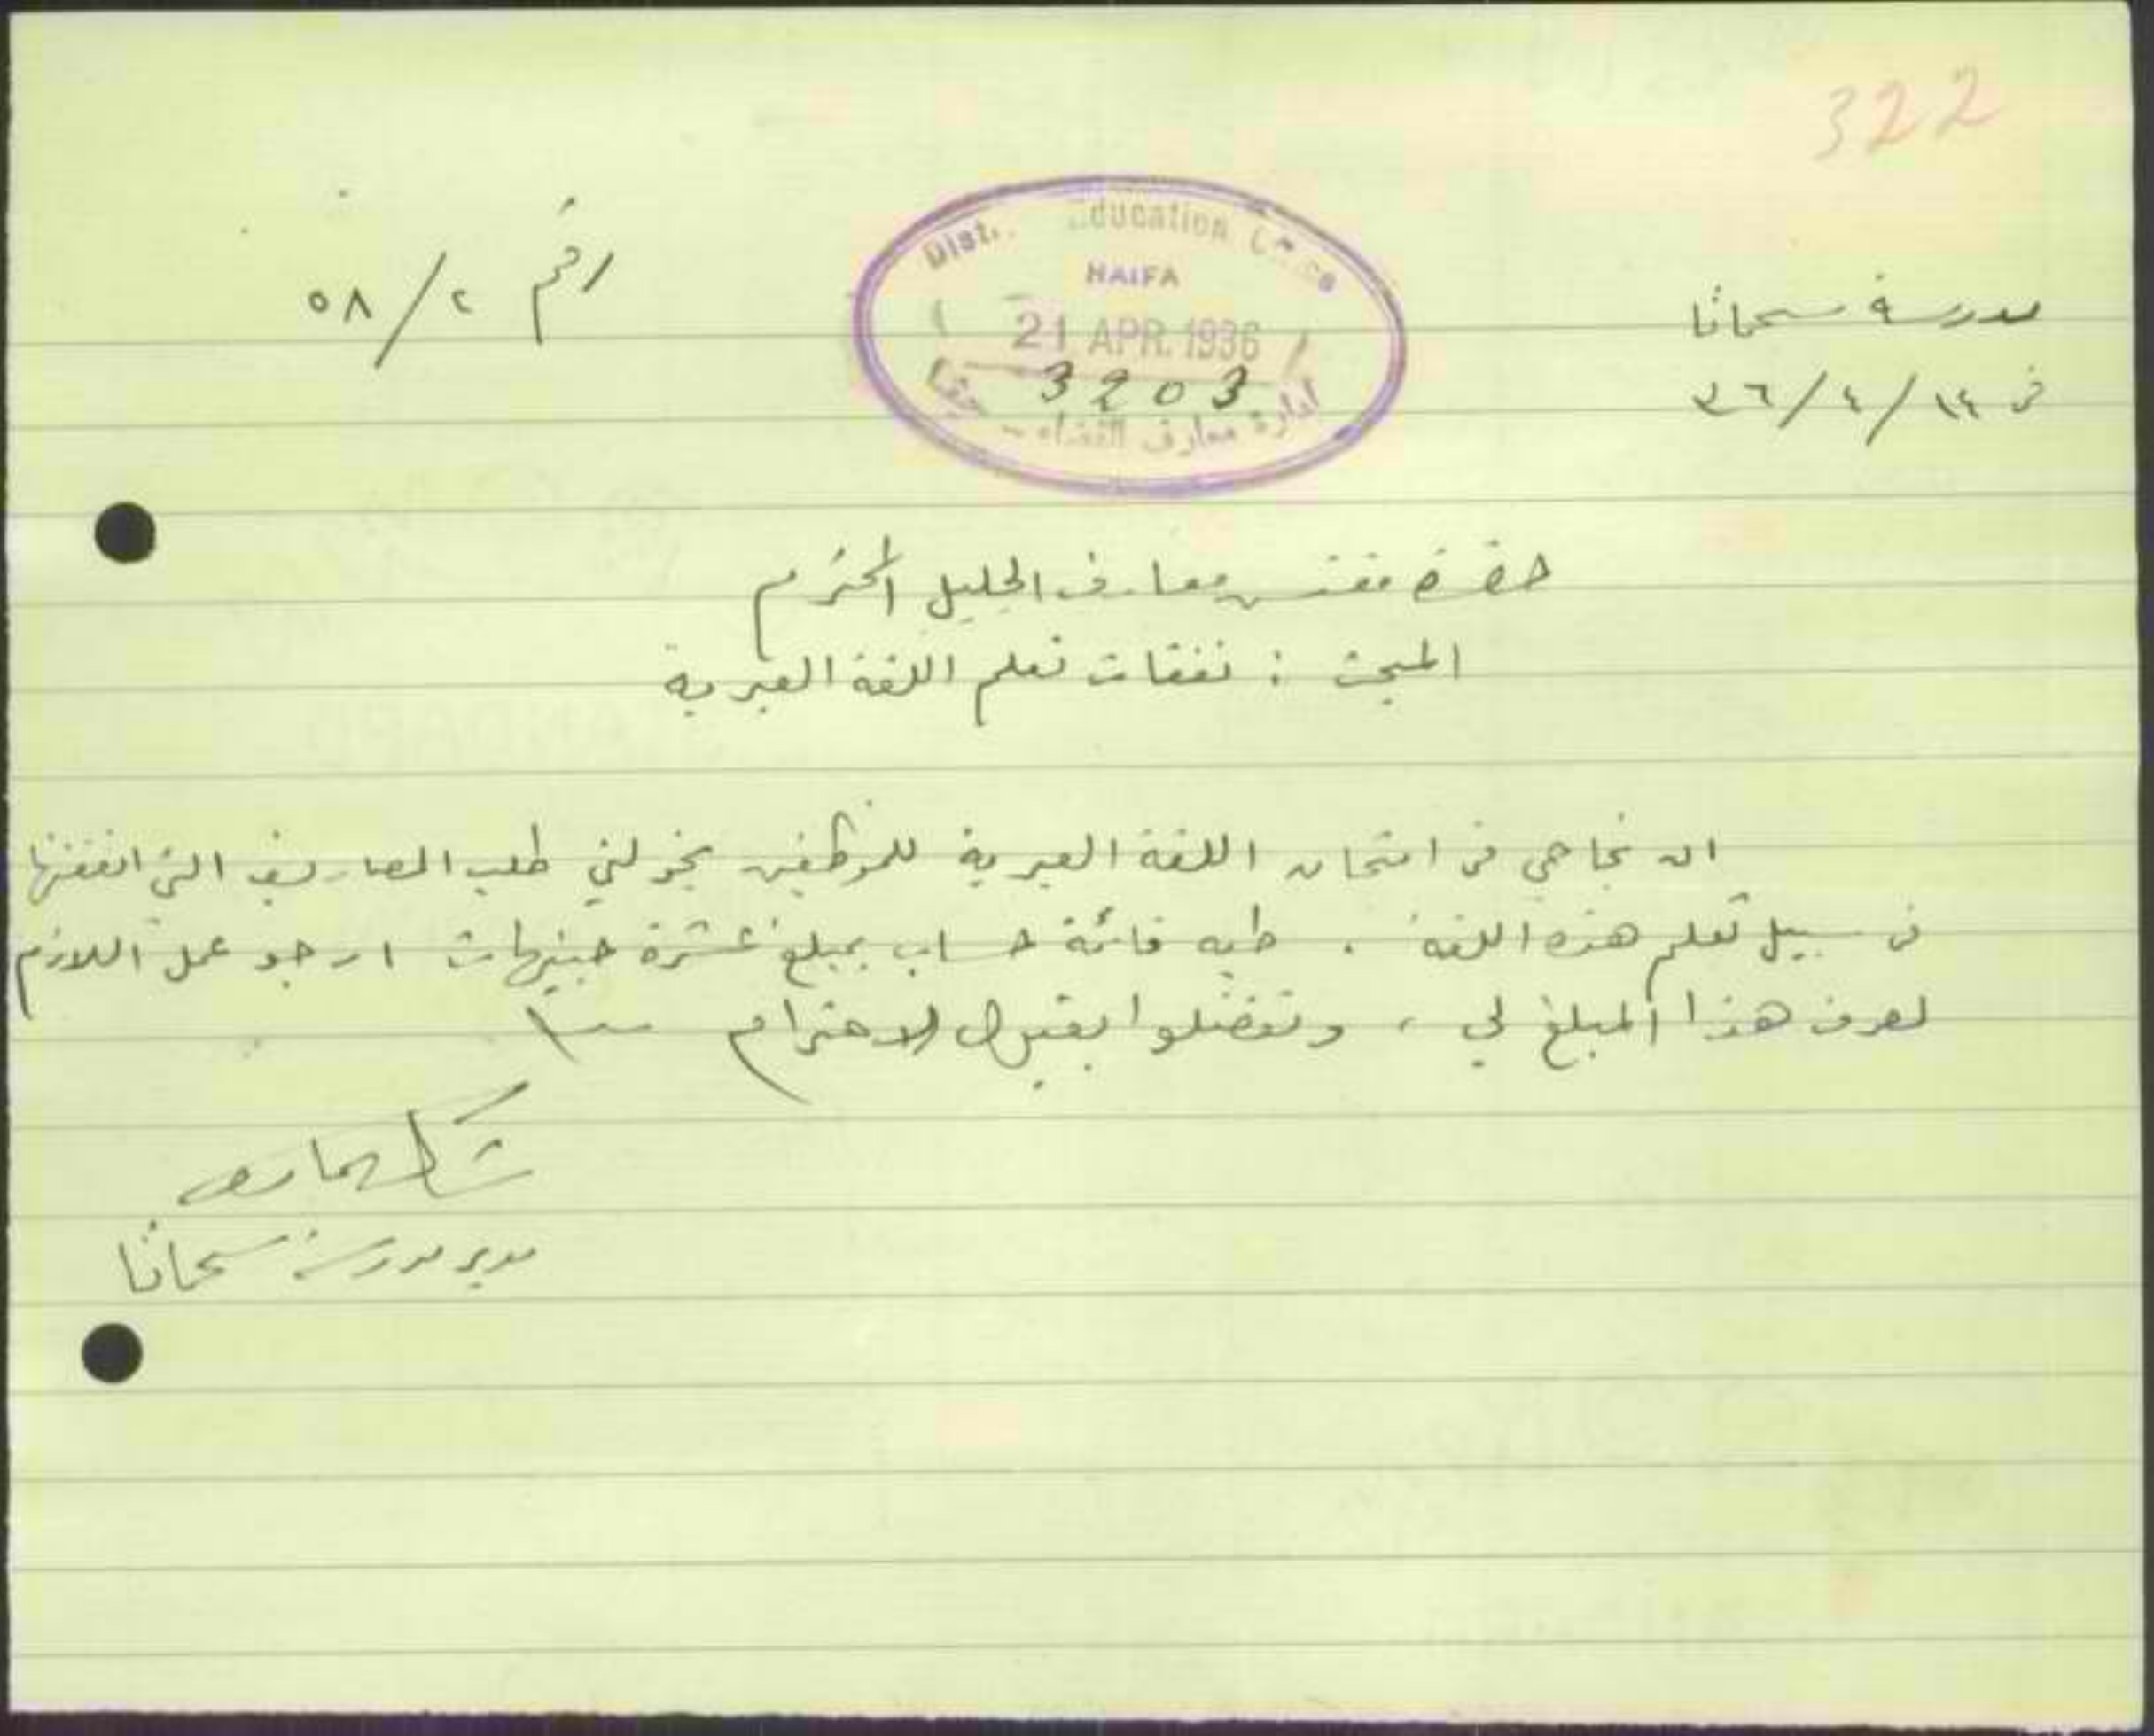 322
مدرسة سحماتا
رقم ٥٨/٢
في ١٤/٤/٣٦
Dist. Education Office
HAIFA
21 APR. 1936
3203
ادارة معارف القضاء – حيفا
حضرة مفتش معارف الجليل المحترم
المبحث : نفقات تعلم اللغة العبرية
ان نجاحي في امتحان اللغة العبرية للموظفين يخولني طلب المصاريف التي انفقتها
في سبيل تعلم هذه اللغة . طيه قائمة حساب بمبلغ عشرة جنيهات ارجو عمل اللازم
لصرف هذا المبلغ لي ، وتفضلوا بقبول الاحترام
مدير مدرسة سحماتا